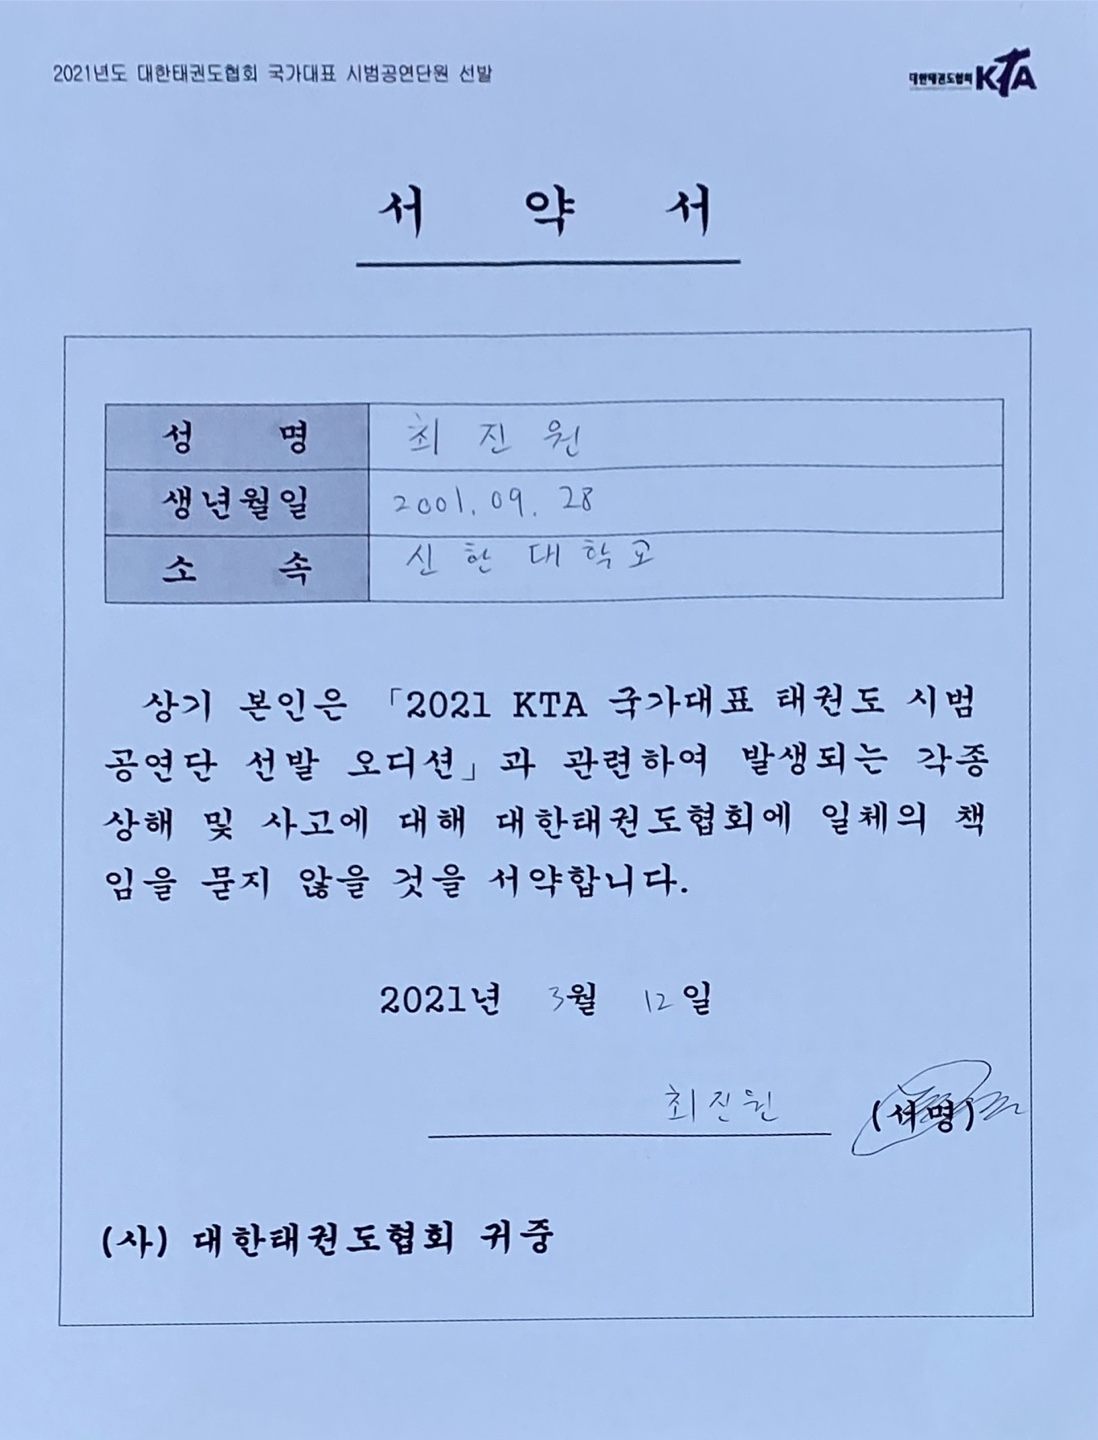 2021년도 대한태권도협회 국가대표 시범공연단원 선발
대한태권도협회 KTA
서 약 서
성 명 최 진 원
생년월일 2001. 09. 28
소 속 신 한 대 학 교
상기 본인은 「2021 KTA 국가대표 태권도 시범
공연단 선발 오디션」과 관련하여 발생되는 각종
상해 및 사고에 대해 대한태권도협회에 일체의 책
임을 묻지 않을 것을 서약합니다.
2021년 3월 12일
최진원 (서명)
(사) 대한태권도협회 귀중